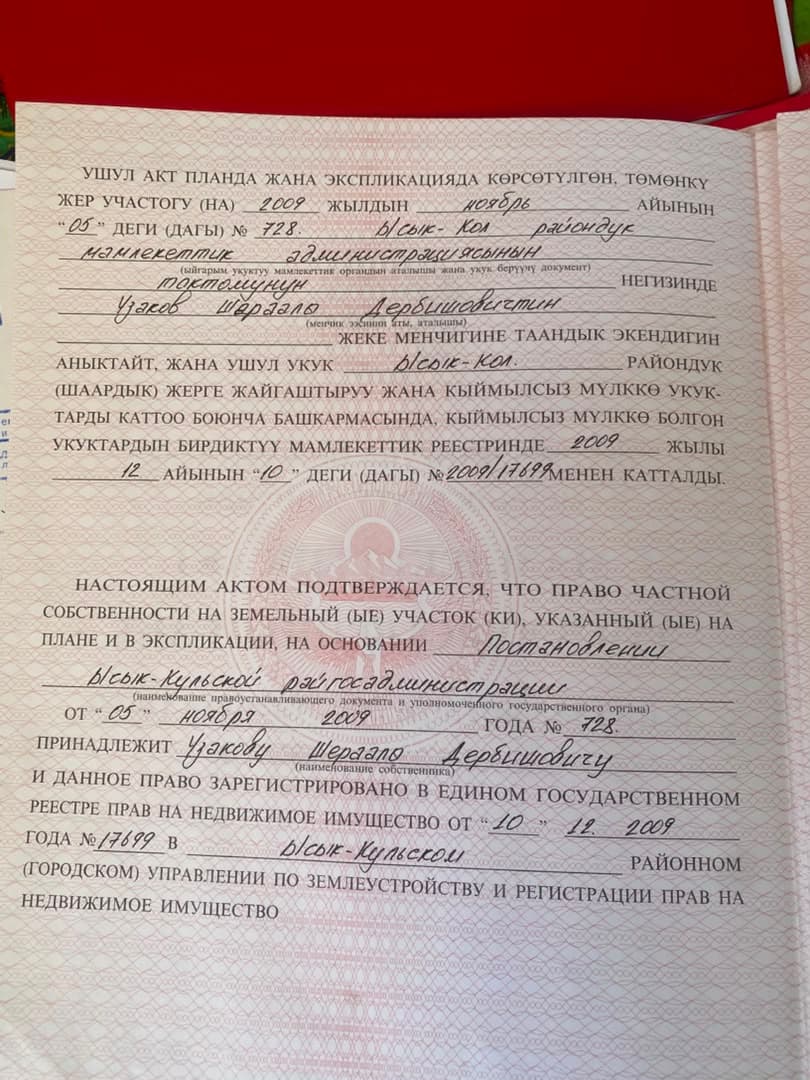 УШУЛ АКТ ПЛАНДА ЖАНА ЭКСПЛИКАЦИЯДА КӨРСӨТҮЛГӨН, ТӨМӨНКҮ
ЖЕР УЧАСТОГУ (НА) 2009 ЖЫЛДЫН ноябрь АЙЫНЫН
“05” ДЕГИ (ДАГЫ) № 728. Ысык-Кол райондук
мамлекеттик администрациясынын
(ыйгарым укуктуу мамлекеттик органдын аталышы жана укук берүүчү документ)
токтомунун НЕГИЗИНДЕ
Узаков Шераалы Дербишовичтин
(менчик ээсинин аты, аталышы)
ЖЕКЕ МЕНЧИГИНЕ ТААНДЫК ЭКЕНДИГИН
АНЫКТАЙТ, ЖАНА УШУЛ УКУК Ысык-Кол. РАЙОНДУК
(ШААРДЫК) ЖЕРГЕ ЖАЙГАШТЫРУУ ЖАНА КЫЙМЫЛСЫЗ МҮЛККӨ УКУК-
ТАРДЫ КАТТОО БОЮНЧА БАШКАРМАСЫНДА, КЫЙМЫЛСЫЗ МҮЛККӨ БОЛГОН
УКУКТАРДЫН БИРДИКТҮҮ МАМЛЕКЕТТИК РЕЕСТРИНДЕ 2009 ЖЫЛЫ
12 АЙЫНЫН “10” ДЕГИ (ДАГЫ) № 2009/17699 МЕНЕН КАТТАЛДЫ.
НАСТОЯЩИМ АКТОМ ПОДТВЕРЖДАЕТСЯ, ЧТО ПРАВО ЧАСТНОЙ
СОБСТВЕННОСТИ НА ЗЕМЕЛЬНЫЙ (ЫЕ) УЧАСТОК (КИ), УКАЗАННЫЙ (ЫЕ) НА
ПЛАНЕ И В ЭКСПЛИКАЦИИ, НА ОСНОВАНИИ Постановлении
Ысык-Кульской райгосадминистрации
(наименование правоустанавливающего документа и уполномоченного государственного органа)
ОТ “05” ноября 2009 ГОДА № 728.
ПРИНАДЛЕЖИТ Узакову Шераалы Дербишовичу
(наименование собственника)
И ДАННОЕ ПРАВО ЗАРЕГИСТРИРОВАНО В ЕДИНОМ ГОСУДАРСТВЕННОМ
РЕЕСТРЕ ПРАВ НА НЕДВИЖИМОЕ ИМУЩЕСТВО ОТ “10” 12. 2009
ГОДА № 17699 В Ысык-Кульском РАЙОННОМ
(ГОРОДСКОМ) УПРАВЛЕНИИ ПО ЗЕМЛЕУСТРОЙСТВУ И РЕГИСТРАЦИИ ПРАВ НА
НЕДВИЖИМОЕ ИМУЩЕСТВО